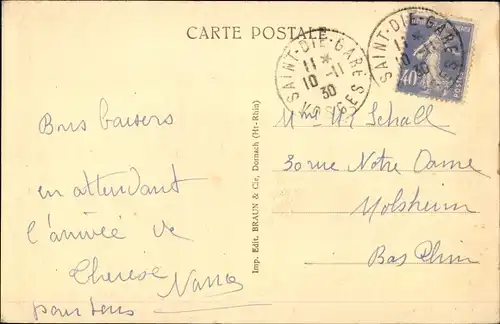 CARTE POSTALE
SAINT-DIE-GARE
11 *
10 -11
30
VOSGES
SAINT-DIE-GARE
11 *
10 -11
30
40
Bons baisers
en attendant
l'arrivée de
Thérèse
pour tous
Imp. Edit. BRAUN & Cie, Dornach (Ht-Rhin)
Mme Schall
30 rue Notre Dame
Molsheim
Bas Rhin